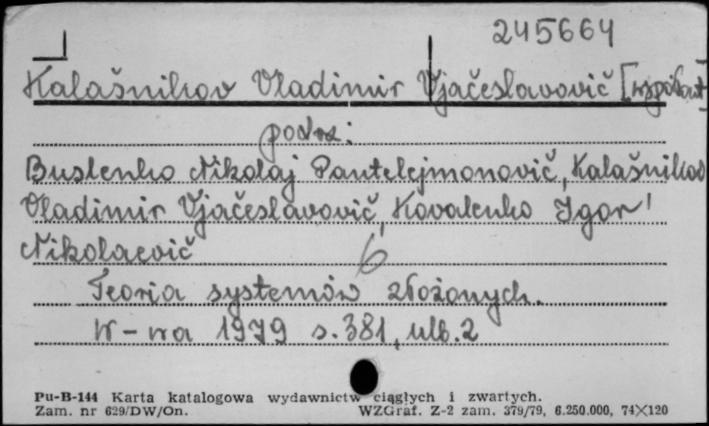 245664
Kalašnikov Vladimir Vjačeslavovič [współaut]
podrz:
Buslenko Nikolaj Pantelejmonovič, Kalašnikov
Vladimir Vjačeslavovič, Kovalenko Igor'
Nikolaevič
6
Teoria systemów złożonych.
W-wa 1979 s. 381, nlb. 2
Pu-B-144 Karta katalogowa wydawnictw ciągłych i zwartych.
Zam. nr 629/DW/On. WZGraf. Z-2 zam. 379/79, 6.250.000, 74×120